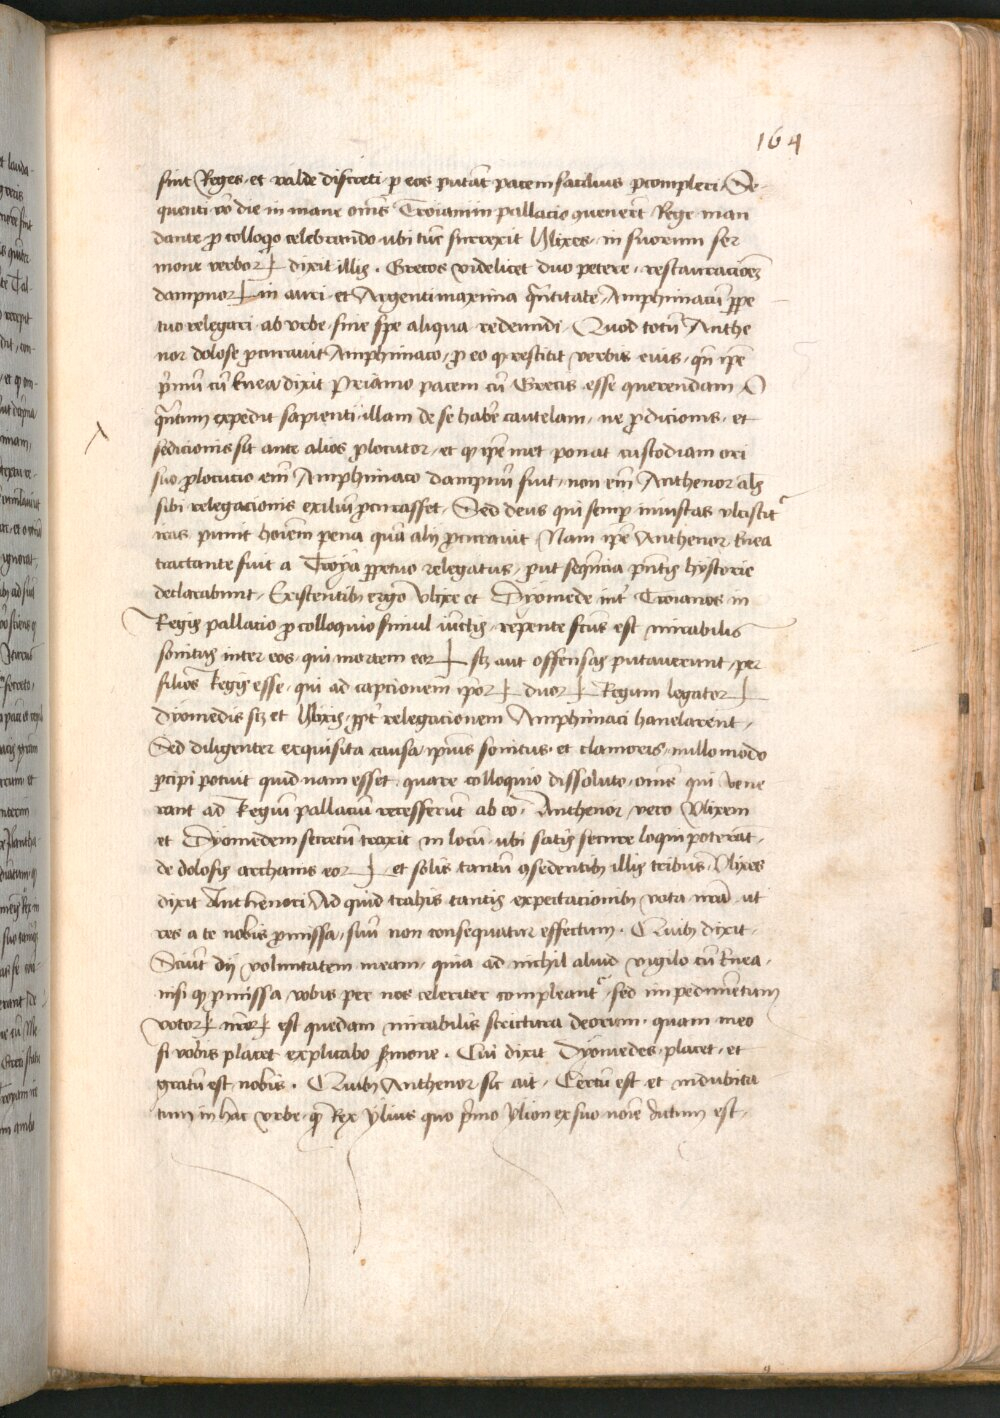 164
sint Reges et valde discreti p eos putāt pacem facilius pcompleri Se-
quenti vō die in mane om̄s Troiani in pallacio quenerūt Rege man
dante p colloq̄o celebrando ubi tūc surrexit Ulixes in suorum ser
mone verboꝝ dixit illis. Grecos videlicet duo petere, restauracioēȝ
dampnoꝝ in auri et Argenti maxima q̄ntitate Amphimacū ppe
tuo relegari ab vrbe sine spe aliqua redeundi. Quod totū Anthe
nor dolose pcuravit Amphimaco, p eo q restitit verbis eius, qn̄ ipē
p̄mū cū Enea dixit Priamo pacem cū Grecis esse querendam O
q̄ntum expedit sapienti illam de se habē cautelam, ne pdicionis et
sedicionis sit ante alios plocutor, et q ipēmet ponat custodiam ori
suo plocucio em̄ Amphimaco dampnū fuit, non em̄ Anthenor als
sibi relegacionis exiliū pcurasset. Sed deus qui semp iniustas ulciscit
iras punit hoīem pena quā alij pcuravit Nam ipē Anthenor Enea
tractante fuit a Troya ppetuo relegatus, put sequēcia pn̄tis hystorie
declarabunt. Existentibꝫ ergo Ulixe et Dyomede int Troianos in
Regis pallacio p colloquio simul iūctis, repente fcūs est mirabilis
sonitus inter eos, qui mortem eoꝝ sꝫ aut offensas putaverunt per
filios Regis esse, qui ad capcionem ipoꝝ duoꝝ Regum legatoꝝ
Dyomedis sꝫ et Ulixis, ppt relegacionem Amphimaci hanelarent,
Sed diligenter exquisita causa ipius sonitus et clamoris, nullomodo
pcipi potuit quidnam esset quare colloquio dissoluto, om̄s qui vene
rant ad Regiū pallaciū recesserūt ab eo. Anthenor vero Ulixem
et Dyomedem secretū traxit in locū ubi satis secure loqui poterat,
de dolosis archanis eoꝝ et solis tantū ꝯsedentibꝫ illis tribus, Ulixes
dixit Anthenori Ad quid trahis tantis expectacionibꝫ vota nr̄a ut
res a te nobis pmissa, suū non consequatur effectum. Cuibꝫ dixit
Sciūt dij voluntatem meam, quia ad nichil aliud vigilo cū Enea,
nisi q pmissa vobis per nos celeriter compleant, sed impedimentum
votoꝝ nr̄oꝝ est quedam mirabilis scriptura deorum quam meo
si vobis placet explicabo smone. Cui dixit Dyomedes, placet et
gratū est nobis. Cuibꝫ Anthenor sic ait, Certū est et indubita
tum in hac vrbe, q Rex ylius quo p̄mo ylion ex suo noīe dictum est,